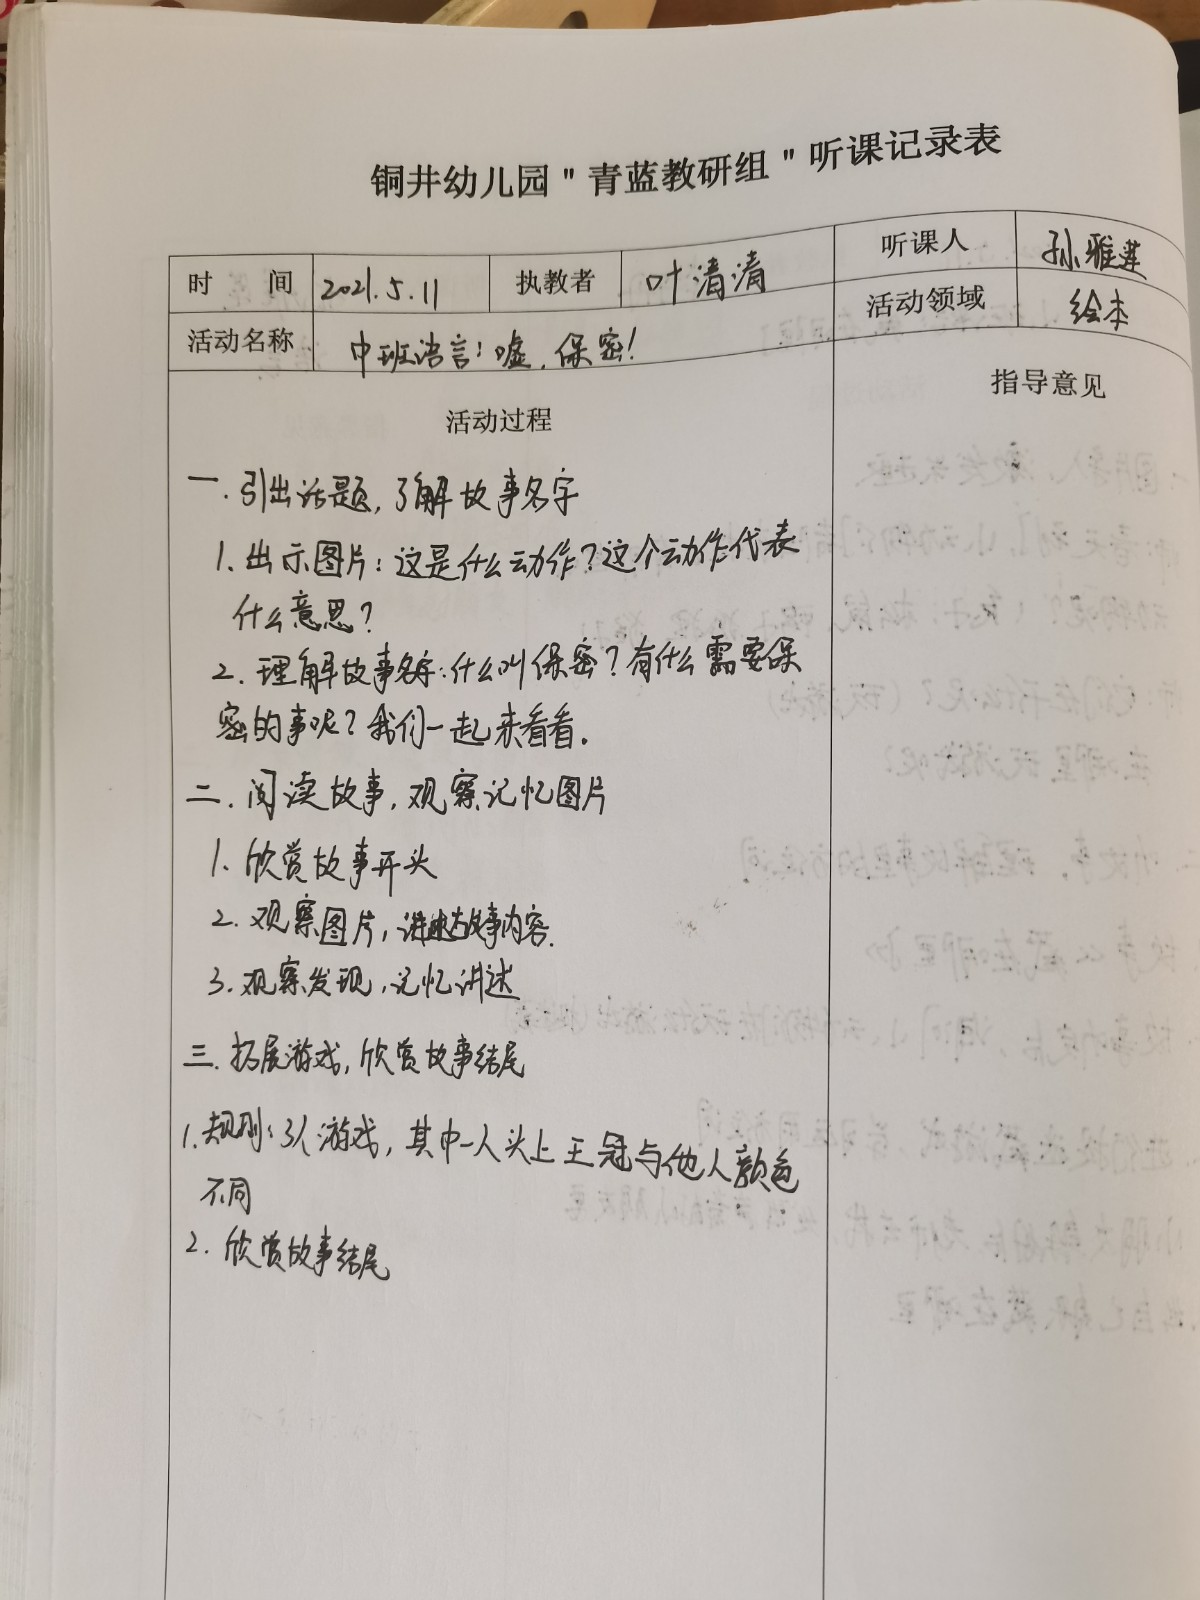 铜井幼儿园"青蓝教研组"听课记录表
时 间 2021.5.11 执教者 叶清清 听课人 孙雅莲
活动名称 中班语言：嘘，保密！ 活动领域 绘本
活动过程 指导意见
一. 引出话题，了解故事名字
1. 出示图片：这是什么动作？这个动作代表
什么意思？
2. 理解故事名字：什么叫保密？有什么需要保
密的事呢？我们一起来看看.
二. 阅读故事，观察记忆图片
1. 欣赏故事开头
2. 观察图片，讲述故事内容.
3. 观察发现，记忆讲述
三. 拓展游戏，欣赏故事结尾
1. 规则：3人游戏，其中一人头上王冠与他人颜色
不同
2. 欣赏故事结尾